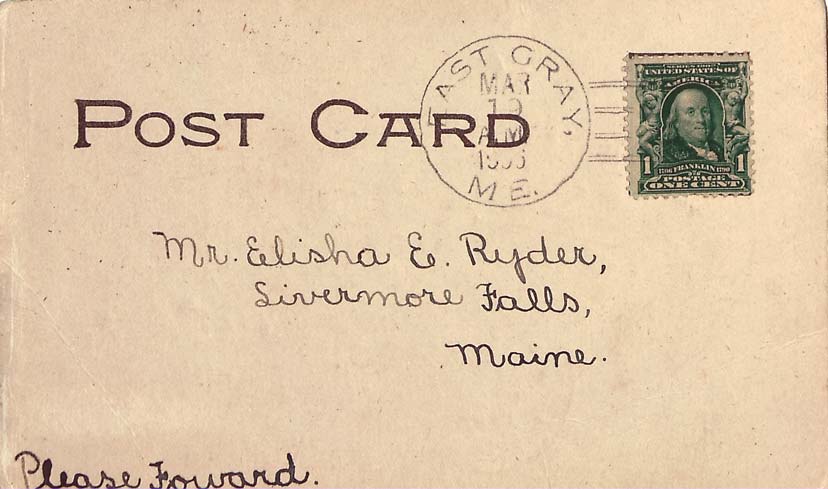 POST CARD
EAST GRAY,
MAR
19
A.M.
M E.
SERIES 1902
UNITED STATES OF
AMERICA
1706 FRANKLIN 1790
1 1
POSTAGE
ONE CENT
Mr. Elisha E. Ryder,
Livermore Falls,
Maine.
Please Forward.